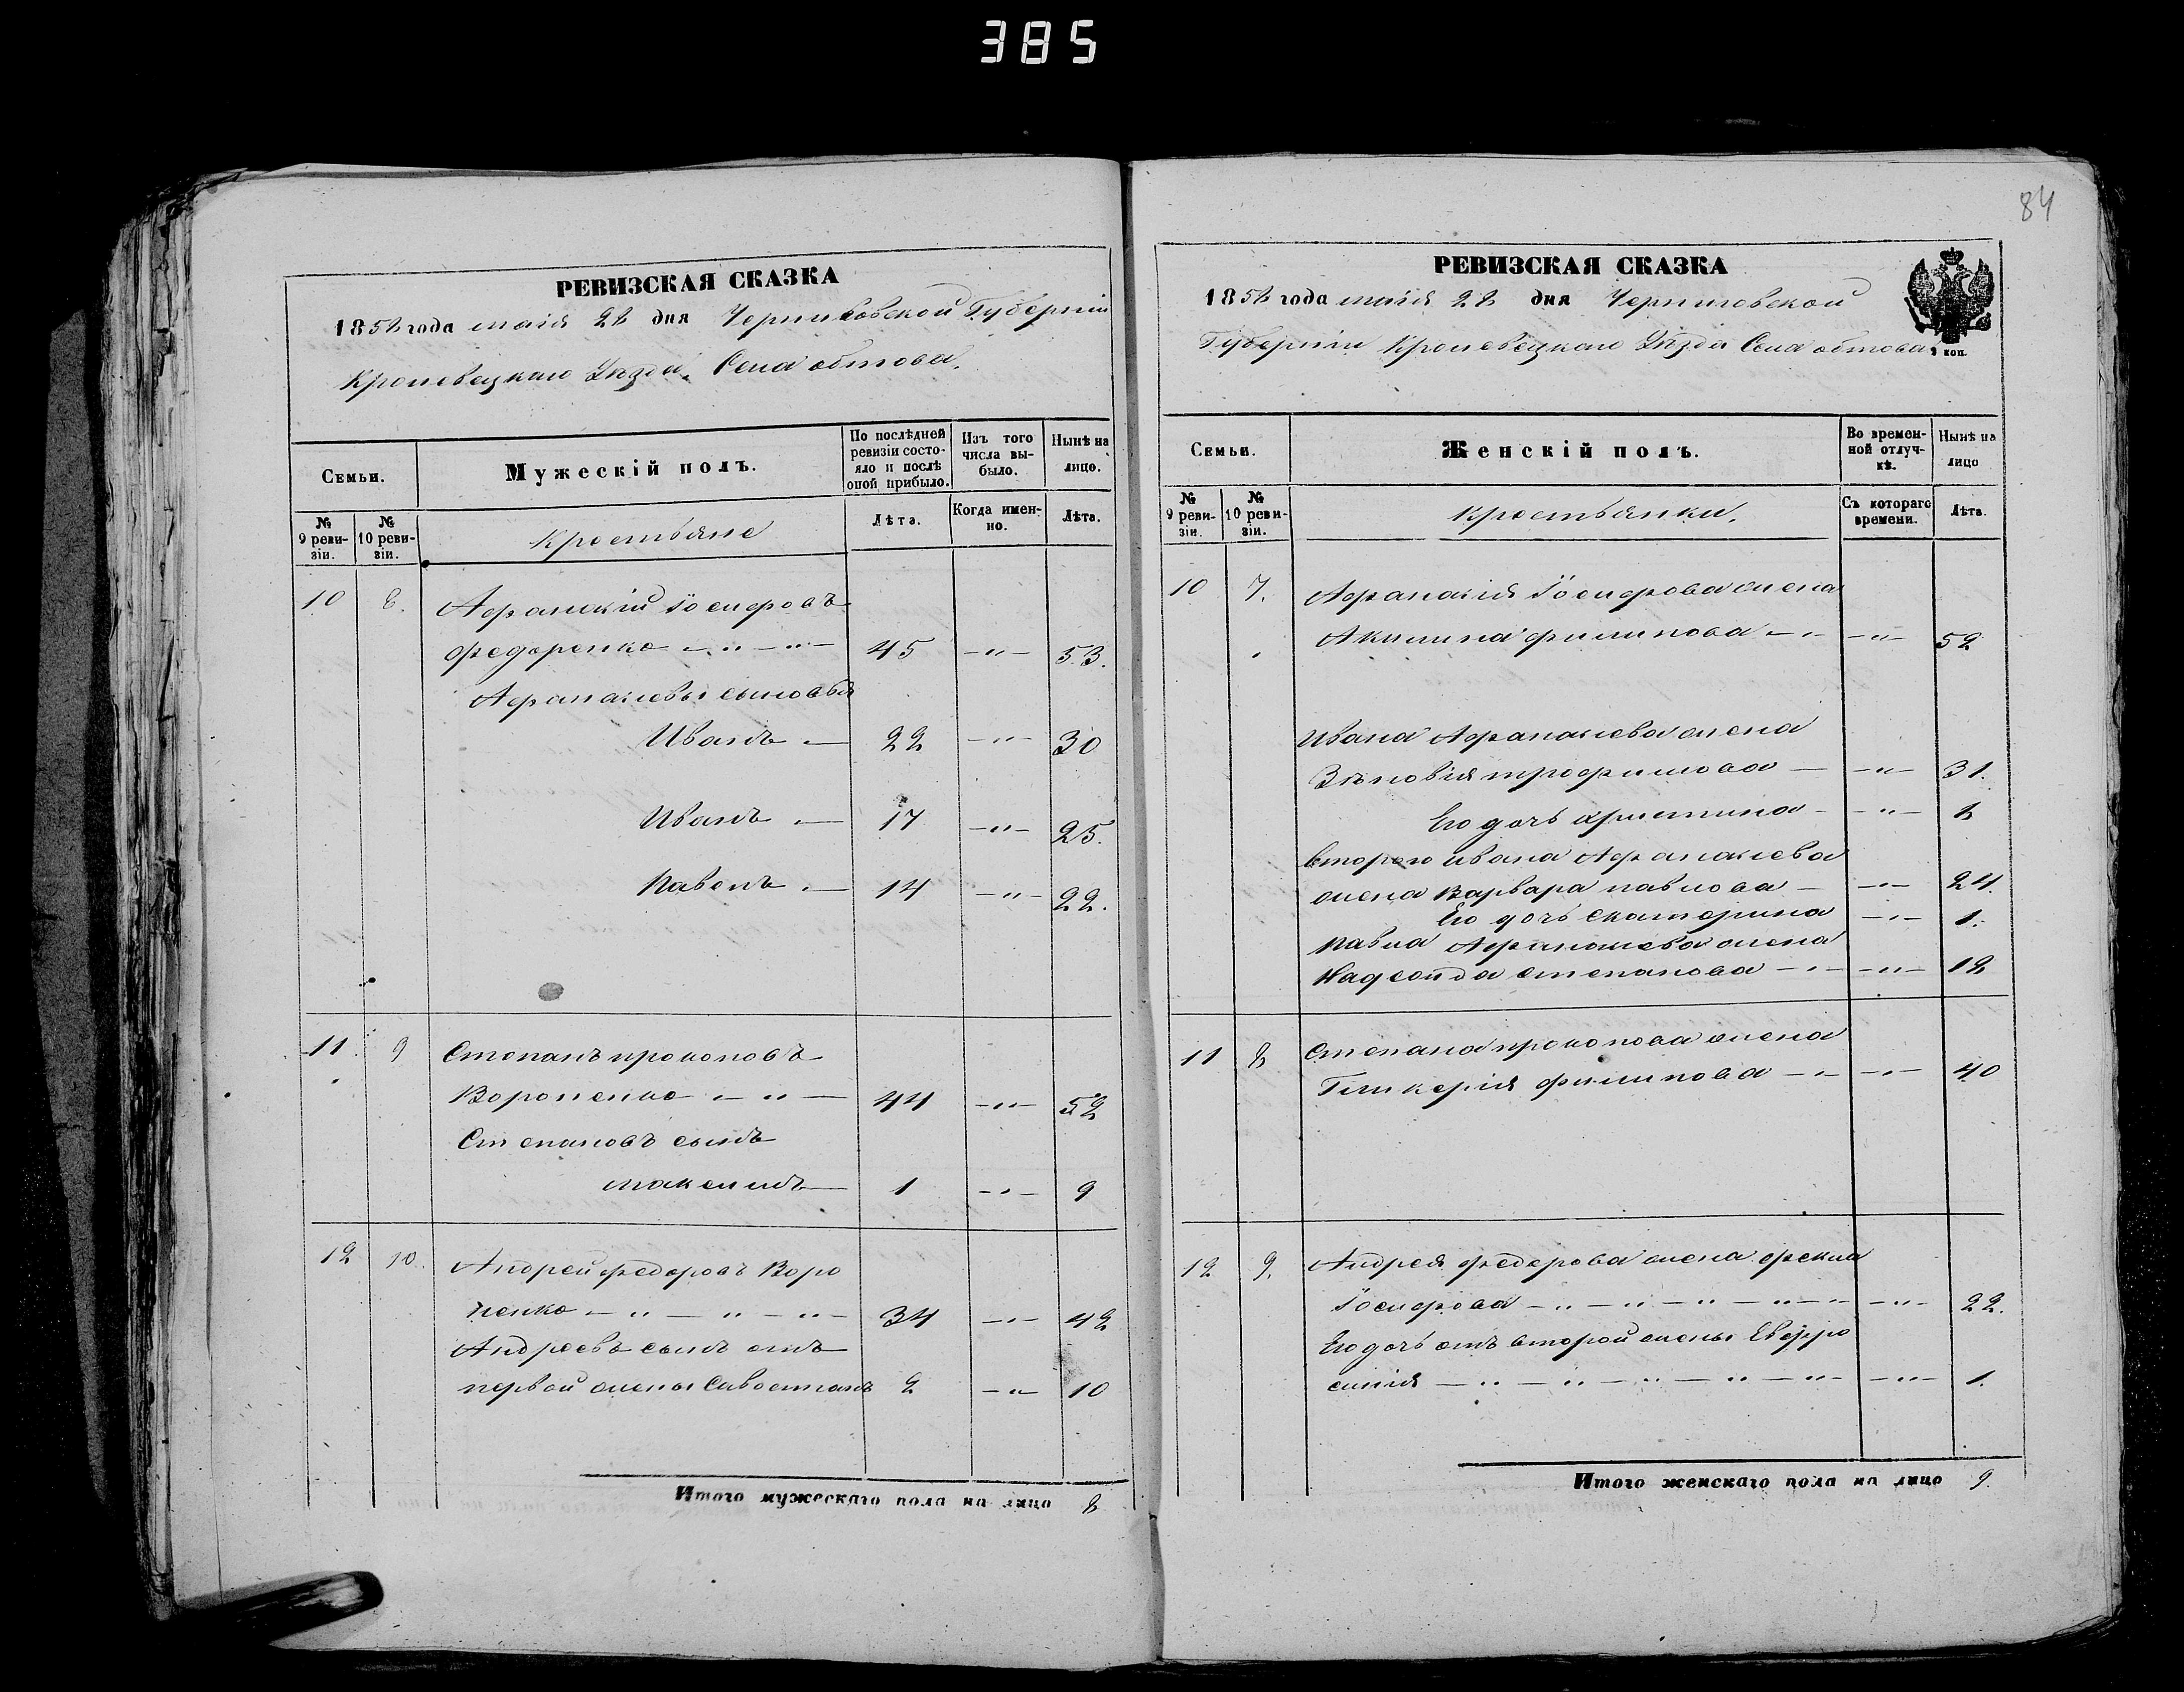 385
84
РЕВИЗСКАЯ СКАЗКА
1858 года маія 28 дня Черниговской Губерніи
Кролевецкаго Уѣзда, Села обтова.
Семьи.
Мужескій полъ.
По послѣдней ревизіи состояло и послѣ оной прибыло.
Изъ того числа выбыло.
Нынѣ на лицо.
№ 9 ревизіи.
№ 10 ревизіи.
Крестьяне
Лѣта.
Когда именно.
Лѣта.
10 8. Афанасій Іосифовъ
Федоренко — „ — „ — 45 — „ — 53.
Афанасіевы сыновья
Иванъ — 22 — „ — 30
Иванъ — 17 — „ — 25.
Павелъ — 14 — „ — 22.
11. 9 Степанъ прокоповъ
Вороненко — „ — 44 — „ — 52
Степановъ сынъ
максимъ — 1 — „ — 9
12 10. Андрей федоровъ Воро
ненко — „ — „ — „ — 34 — „ — 42
Андреевъ сынъ отъ
первой жены Савостианъ 2 — „ — 10
Итого мужескаго пола на лицо 8
РЕВИЗСКАЯ СКАЗКА
1858 года маія 28 дня Черниговской
Губерніи Кролевецкаго Уѣзда Села обтова
коп.
Семьи.
Женскій полъ.
Во временной отлучкѣ.
Нынѣ на лицо
№ 9 ревизіи.
№ 10 ревизіи.
крестьянки.
Съ котораго времени.
Лѣта.
10 7. Афанасія Іосифова жена
Акилина филипова — „ — „ — 52
Ивана Афанасіева жена
Зѣновія трофимова — — „ — 31.
Его дочь христина — — „ — 8
второго ивана Афанасіева
жена Варвара павлова — — „ — 24.
Его дочь екатерина — „ — 1.
павла Афанасіева жена
Надежда степанова — „ — „ — 19
11 8 Степана прокопова жена
Гликерія филипова — „ — „ — 40
12 9. Андрея федорова жена фекла
Іосифова — „ — „ — „ — „ — „ — 22.
Его дочь отъ второй жены Евфро
синія — „ — „ — „ — „ — „ — „ — 1.
Итого женскаго пола на лицо 9.